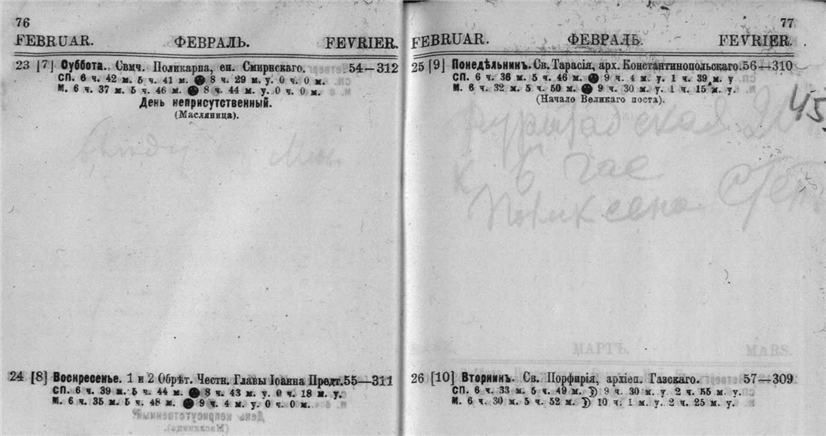 76
FEBRUAR. ФЕВРАЛЬ. FEVRIER.
23 [7] Суббота. Свмч. Поликарпа, еп. Смирнскаго. 54—312
СП. 6 ч. 42 м. 5 ч. 41 м. ● 8 ч. 29 м. у. 0 ч. 0 м.
М. 6 ч. 37 м. 5 ч. 46 м. ● 8 ч. 44 м. у. 0 ч. 0 м.
День неприсутственный.
(Масляница).
24 [8] Воскресенье. 1 и 2 Обрѣт. Честн. Главы Іоанна Предт. 55—311
СП. 6 ч. 39 м. 5 ч. 44 м. ● 8 ч. 43 м. у. 0 ч. 18 м. у.
М. 6 ч. 35 м. 5 ч. 48 м. ● 9 ч. 4 м. у. 0 ч. 0 м.
77
FEBRUAR. ФЕВРАЛЬ. FEVRIER.
25 [9] Понедѣльникъ. Св. Тарасія, арх. Константинопольскаго. 56—310
СП. 6 ч. 36 м. 5 ч. 46 м. ● 9 ч. 4 м. у. 1 ч. 39 м. у
М. 6 ч. 32 м. 5 ч. 50 м. ● 9 ч. 30 м. у. 1 ч. 15 м. у.
(Начало Великаго поста).
45
к 6 час
Поликсена
26 [10] Вторникъ. Св. Порфирія, архіеп. Газскаго. 57—309
СП. 6 ч. 33 м. 5 ч. 49 м. ☽ 9 ч. 30 м. у. 2 ч. 55 м. у.
М. 6 ч. 30 м. 5 ч. 52 м. ☽ 10 ч. 1 м. у. 2 ч. 25 м. у.